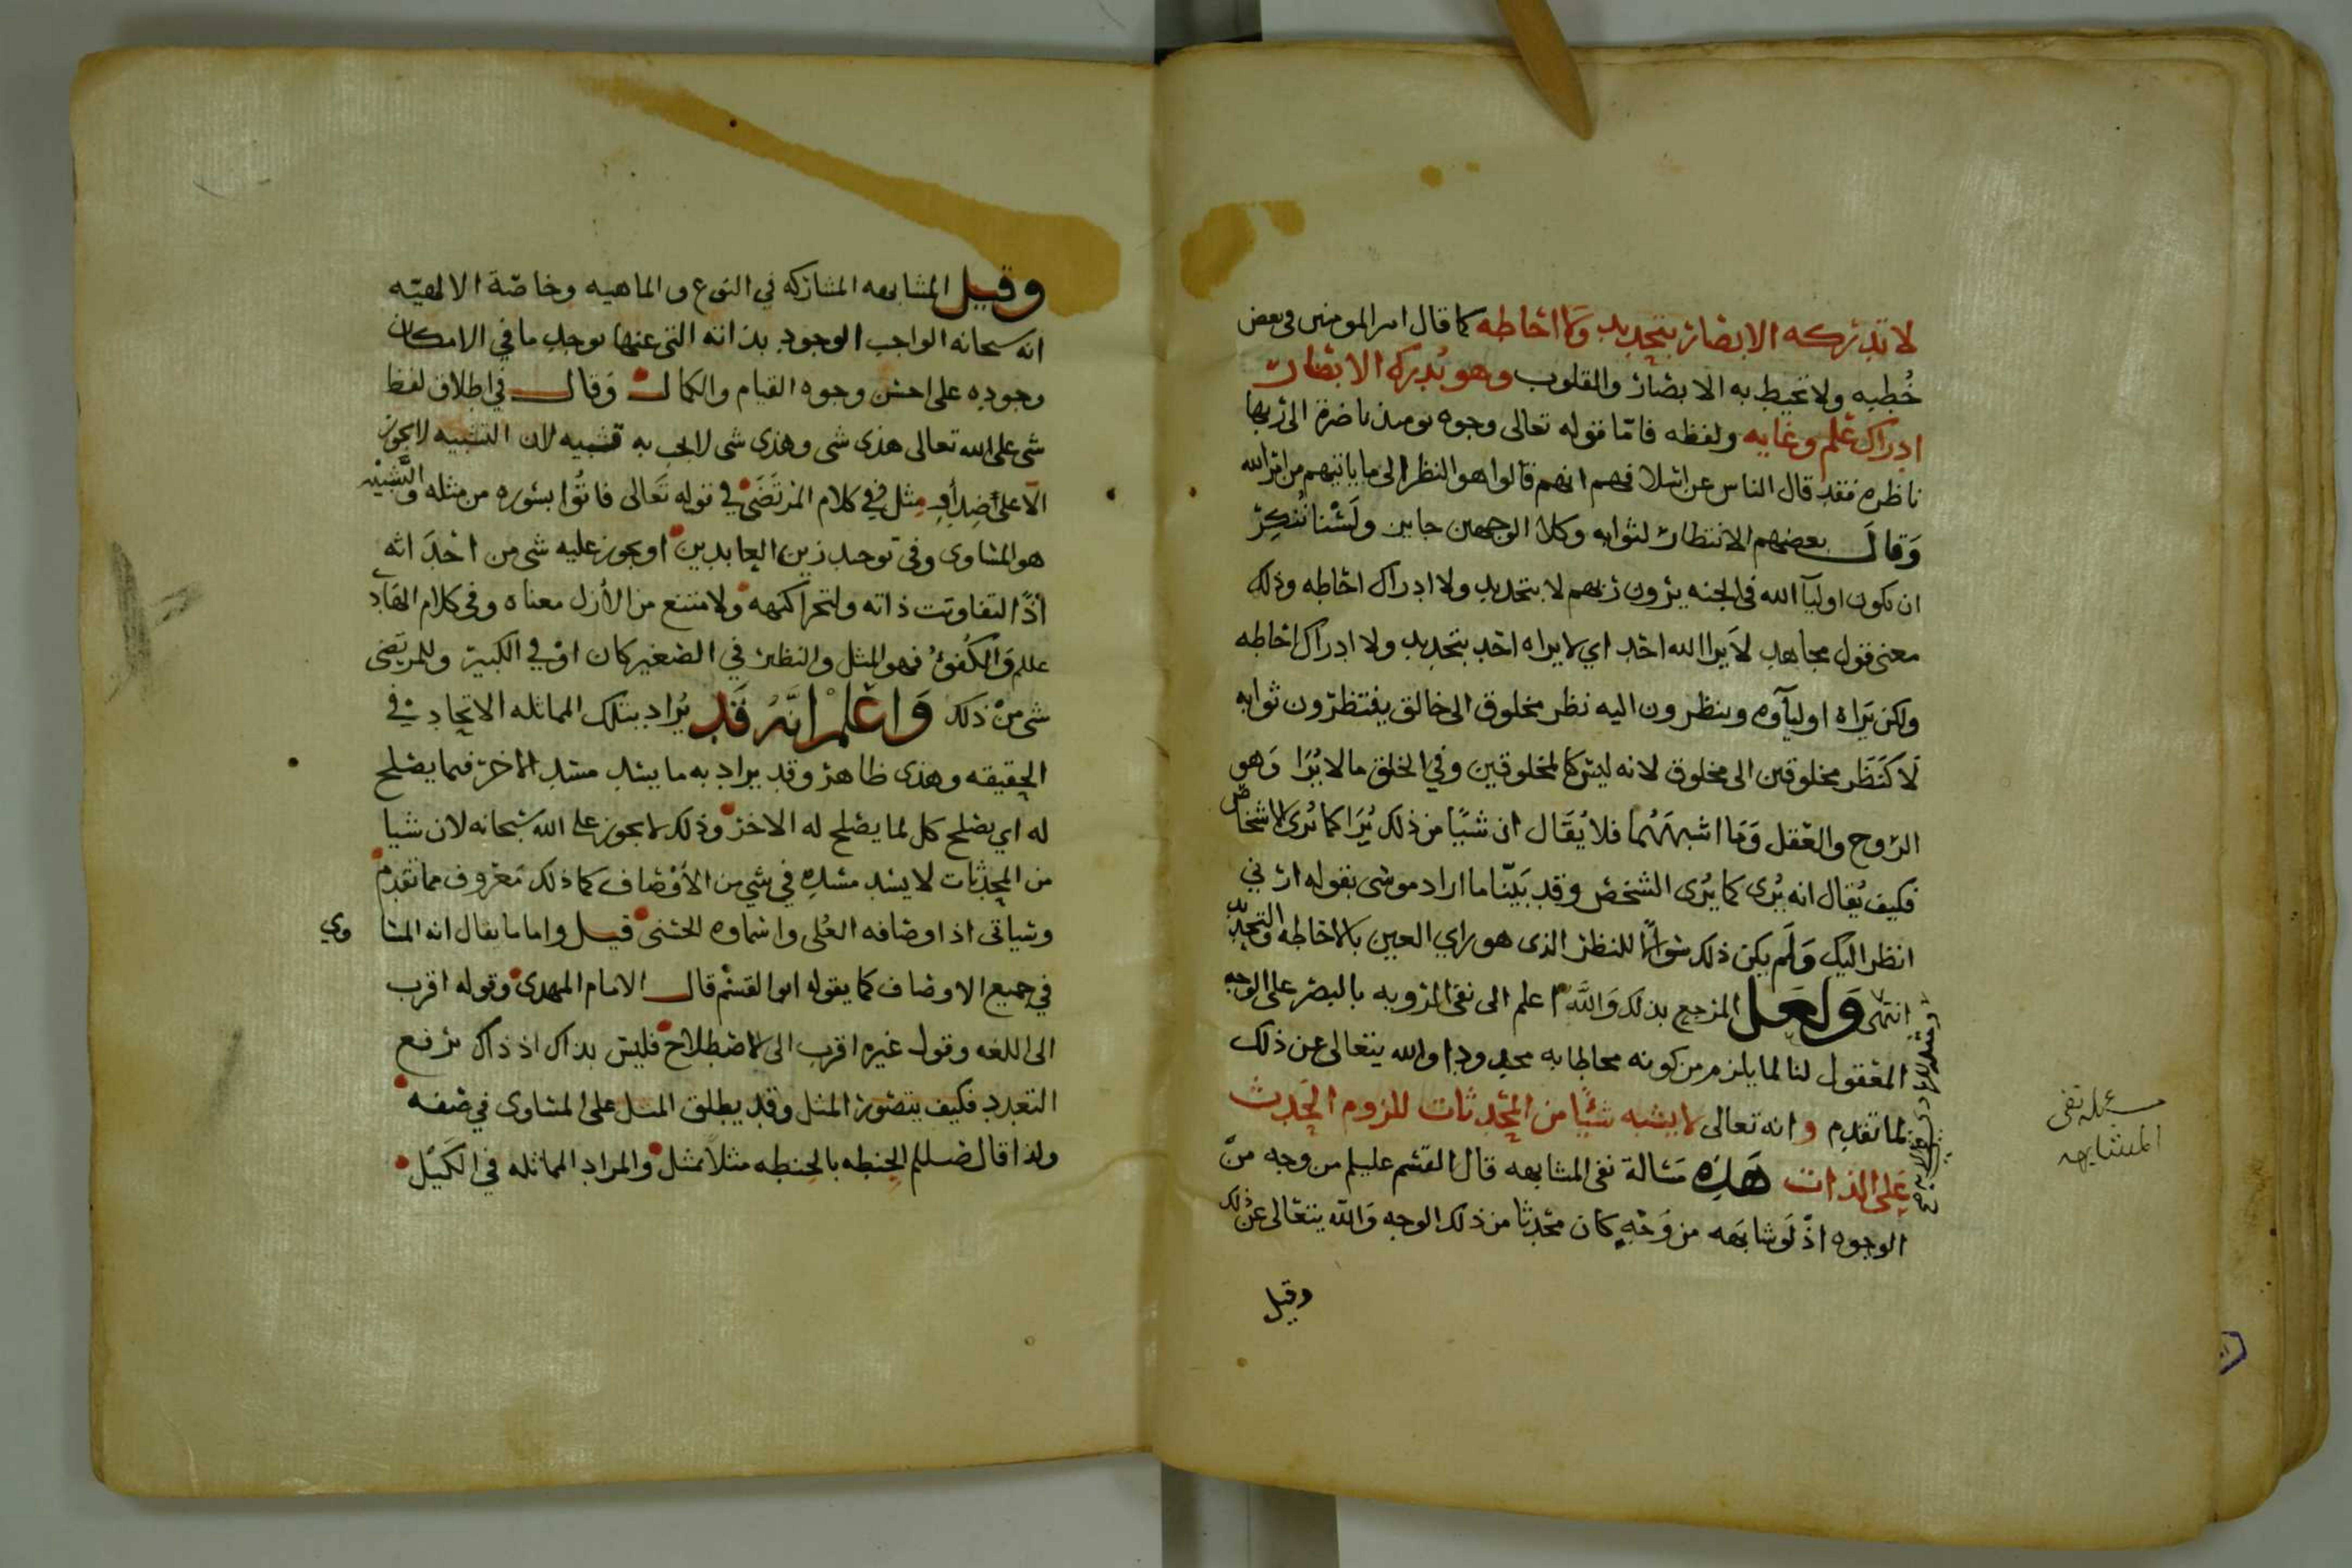 لا تدركه الابصار بتحديد ولا احاطه كما قال امير المومنين في بعض
خُطبه ولا تحيط به الابصار والقلوب وهو يُدرك الابصار
ادراك علم وغايه ولفظه فامّا قوله تعالى وجوه يوميذ ناضرة الى ربها
ناظره فقد قال الناس عن اسلافهم انهم قالوا هو النظر الى ما ياتيهم من امر الله
وَقال بعضهم الانتظار لثوابه وكلا الوجهين جايز ولسْنا نُنكِرُ
ان يكون اوليآ الله في الجنه يرون ربهم لا بتحديد ولا ادراك احاطه وذلك
معنى قول مجاهد لا يرا الله احد اي لا يراه احد بتحديد ولا ادراك احاطه
ولكن يَراه اوليآوه وينظرون اليه نظر مخلوق الى خالق ينتظرون ثوابه
لَا كَنَظَر مخلوقين الى مخلوق لانه ليس كالمخلوقين وفي الخلق ما لا يُرَا وَهو
الرّوح والعقل وَمَا اشبههُما فلا يُقَال ان شيًا من ذلك يُرَا كما تُرى الاشخاص
فكيف يُقال انه يُرى كما يُرى الشخص وقد بَيّنا ما اراد موسى بقوله ارني
انظر اليك وَلَم يكن ذلك سؤالًا للنظر الذى هو راي العين بالاحاطه والتحديد
انتهى وَلعَل المرجع بذلك وَاللّه اعلم الى نفى الرؤيه بالبصر على الوجه
المعقول لنا لما يلزم من كونه محاطا به محدودا والله يتعالى عن ذلك
لما تقدم وانه تعالى لا يشبه شيًا من المُحدثات للزوم الحَدث
عَلى الذات هَذه مَسالة نفى المشابهه قال القسم عليلم من وجه منَ
الوجوه اذ لَو شابَهَه من وَجْهٍ كان محدثا من ذلك الوجه وَالله يتعَالى عن ذلك
وقيل
مسئله نفى
المشابهه
وقيل المشابهه المشاركه في النوع والماهيه وخاصّة الالهيّه
انه سبحانه الواجب الوجود بذاته التى عنها يوجد ما في الامكان
وجوده على احسن وجوه القيام والكمال وَقال في اطلاق لفظ
شى على الله تعالى هذى شى وهذى شى لا يجب به تشبيه لان التشبيه لا يجوز
هو المساوى وفى توحيد زين العابدين او يجوز عليه شى من احدَاثه
اذًا لتفاوتت ذاته ولتجزا كنهه ولامتنع من الأزل معناه وفى كلام الهَادى
عللم وَالكُفؤُ فهو المثل والنظير في الصغير كان اوْ في الكبير وللمرتَضى
شى من ذلك وَاعْلَمْ انّهُ قَد يُراد بتلك المماثله الاتحاد في
الحقيقه وهذى ظاهر وقد يراد به ما يسد مسَد الاخر فيما يصلح
له اي يصلح كل لما يصلح له الاخر وذلك لا يجوز على الله سبحانه لان شيا
من المحدثات لا يسد مسَده في شي من الأوْصاف كما ذلك مَعْروف مما تقدم
وسياتى اذ اوصافه العُلى واسماوه الحسنى قيل واما ما يقال انه المساوي
في جميع الاوصاف كما يقوله ابو القسم قال الامام المهدى وقوله اقرب
الى اللغه وقول غيره اقرب الى الاصطلاح فليس بذاك اذ ذاك يرفع
التعدد فكيف يتصور المثل وقد يطلق المثل على المساوى في صفه
ولذا قال صللم الحِنطه بالحِنطه مثلًا بمثل والمراد المماثله في الكَيْل